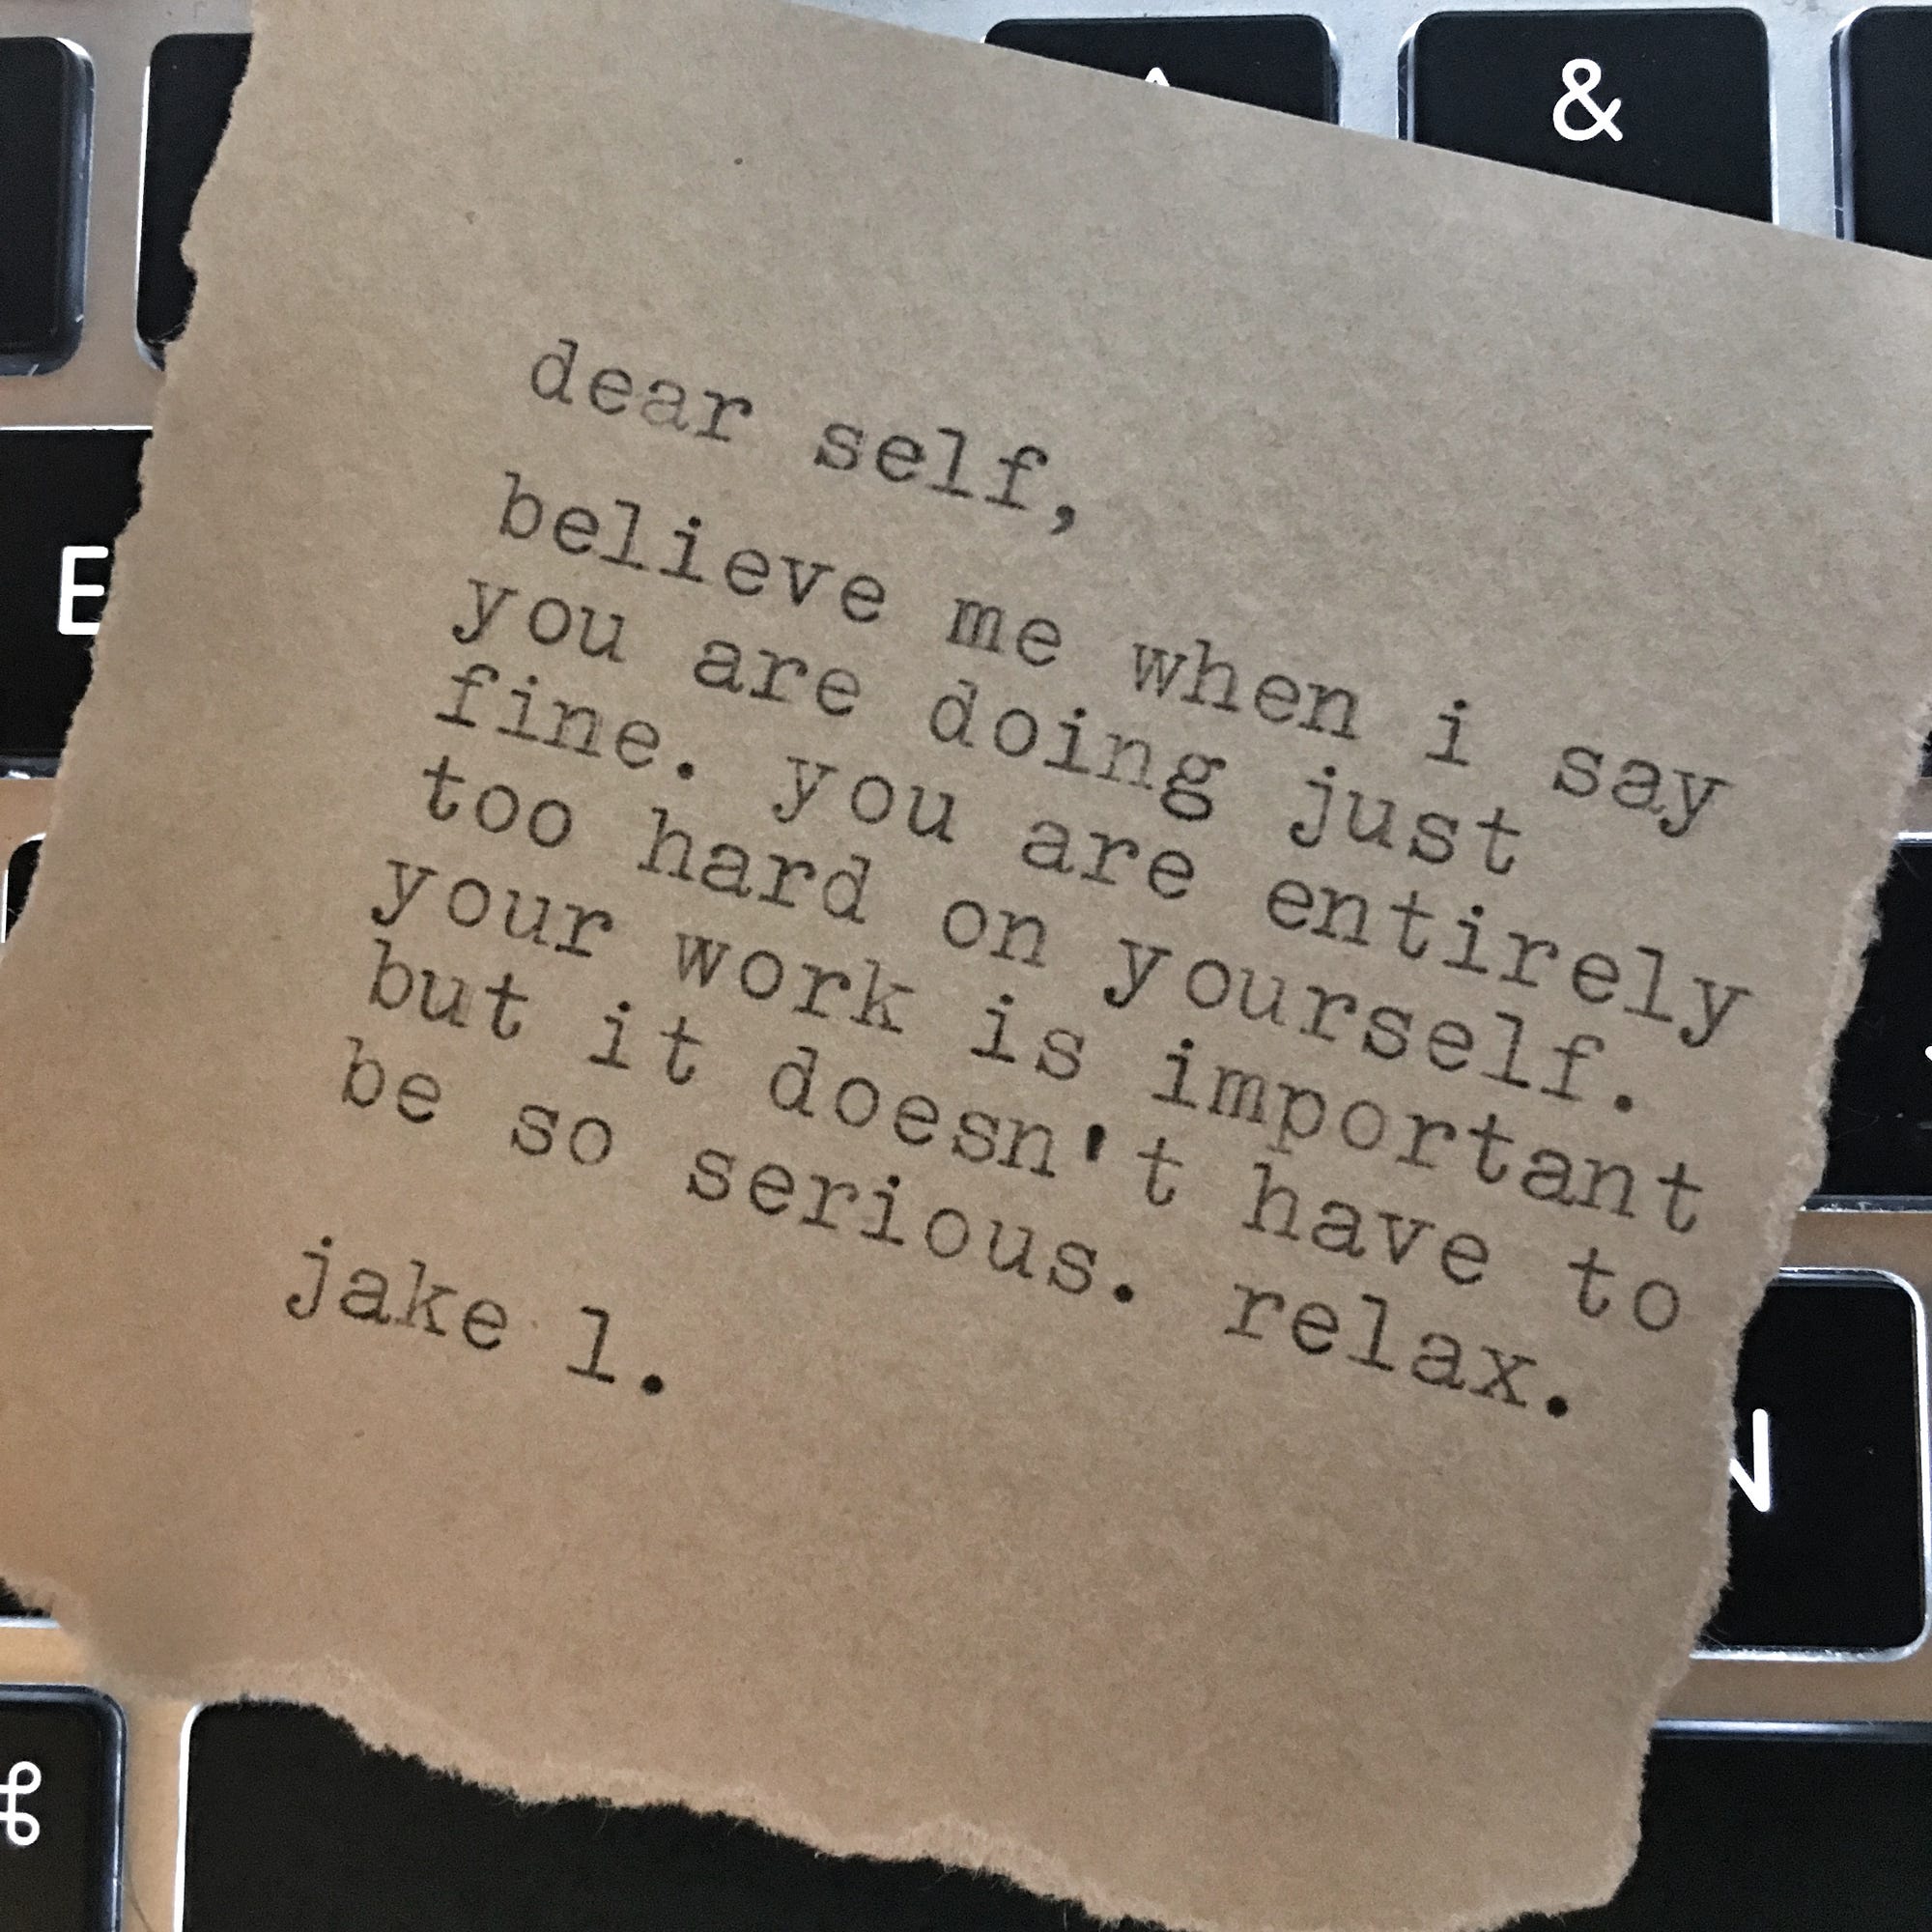 &
E
dear self,
believe me when i say
you are doing just
fine. you are entirely
too hard on yourself.
your work is important
but it doesn't have to
be so serious. relax.
jake l.
N
⌘